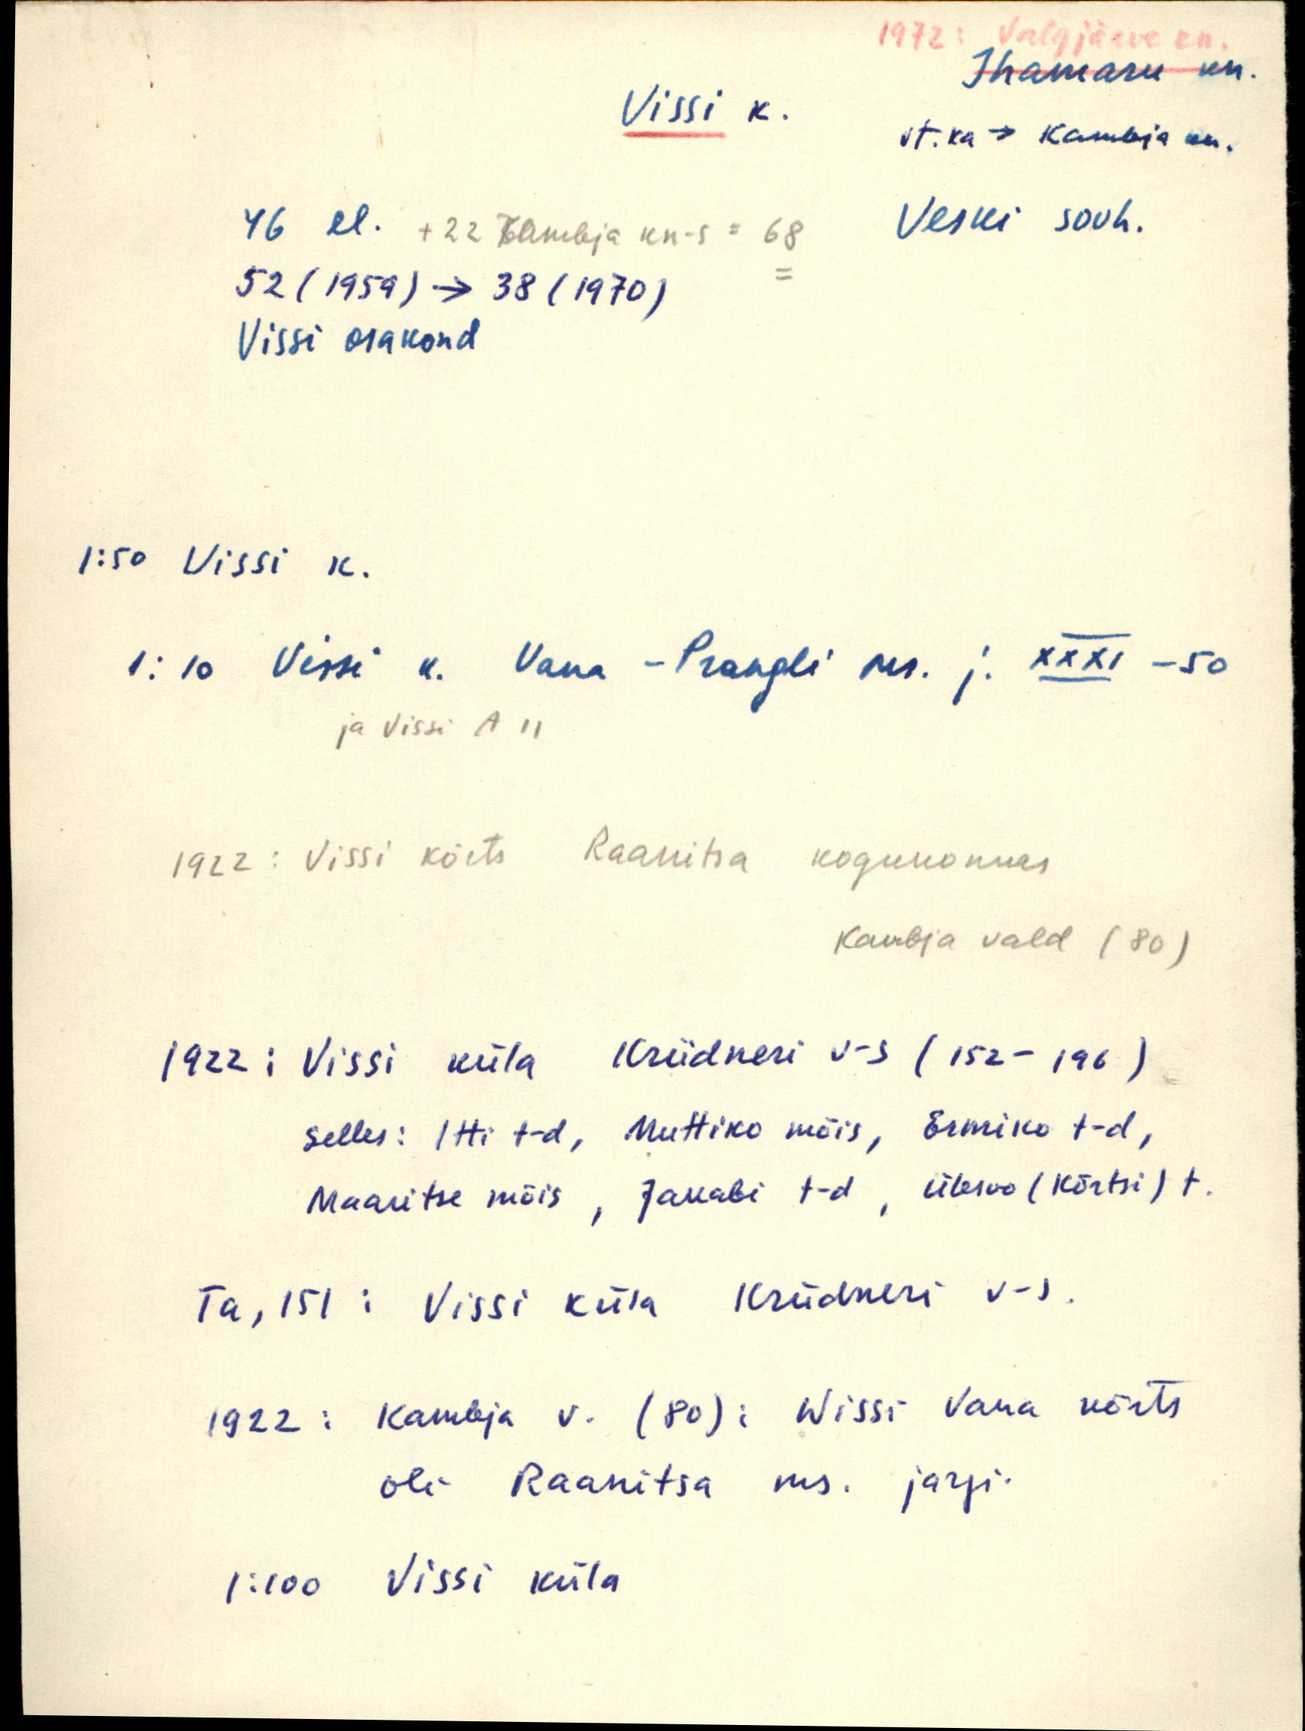 1972: Valgjärve kn.
Ihamaru kn.
Vissi k.
vt. ka → Kambja kn.
46 el. +22 Kambja kn-s = 68
Veski sovh.
52 (1959) → 38 (1970)
Vissi osakond
1:50 Vissi k.
1:10 Vissi k. Vana-Prangli ms. j. XXXI -50
ja Vissi A 11
1922: Vissi kõrts Raanitsa kogukonnas
Kambja vald (80)
1922: Vissi küla Krüdneri v-s (152-196)
selles: Itti t-d, Muttiko mõis, Ermiko t-d,
Maaritse mõis, Jakabi t-d, (Kõrtsi) t.
Ta, 151: Vissi küla Krüdneri v-s.
1922: Kambja v. (80): Wissi Vana kõrts
oli Raanitsa ms. järgi.
1:100 Vissi küla